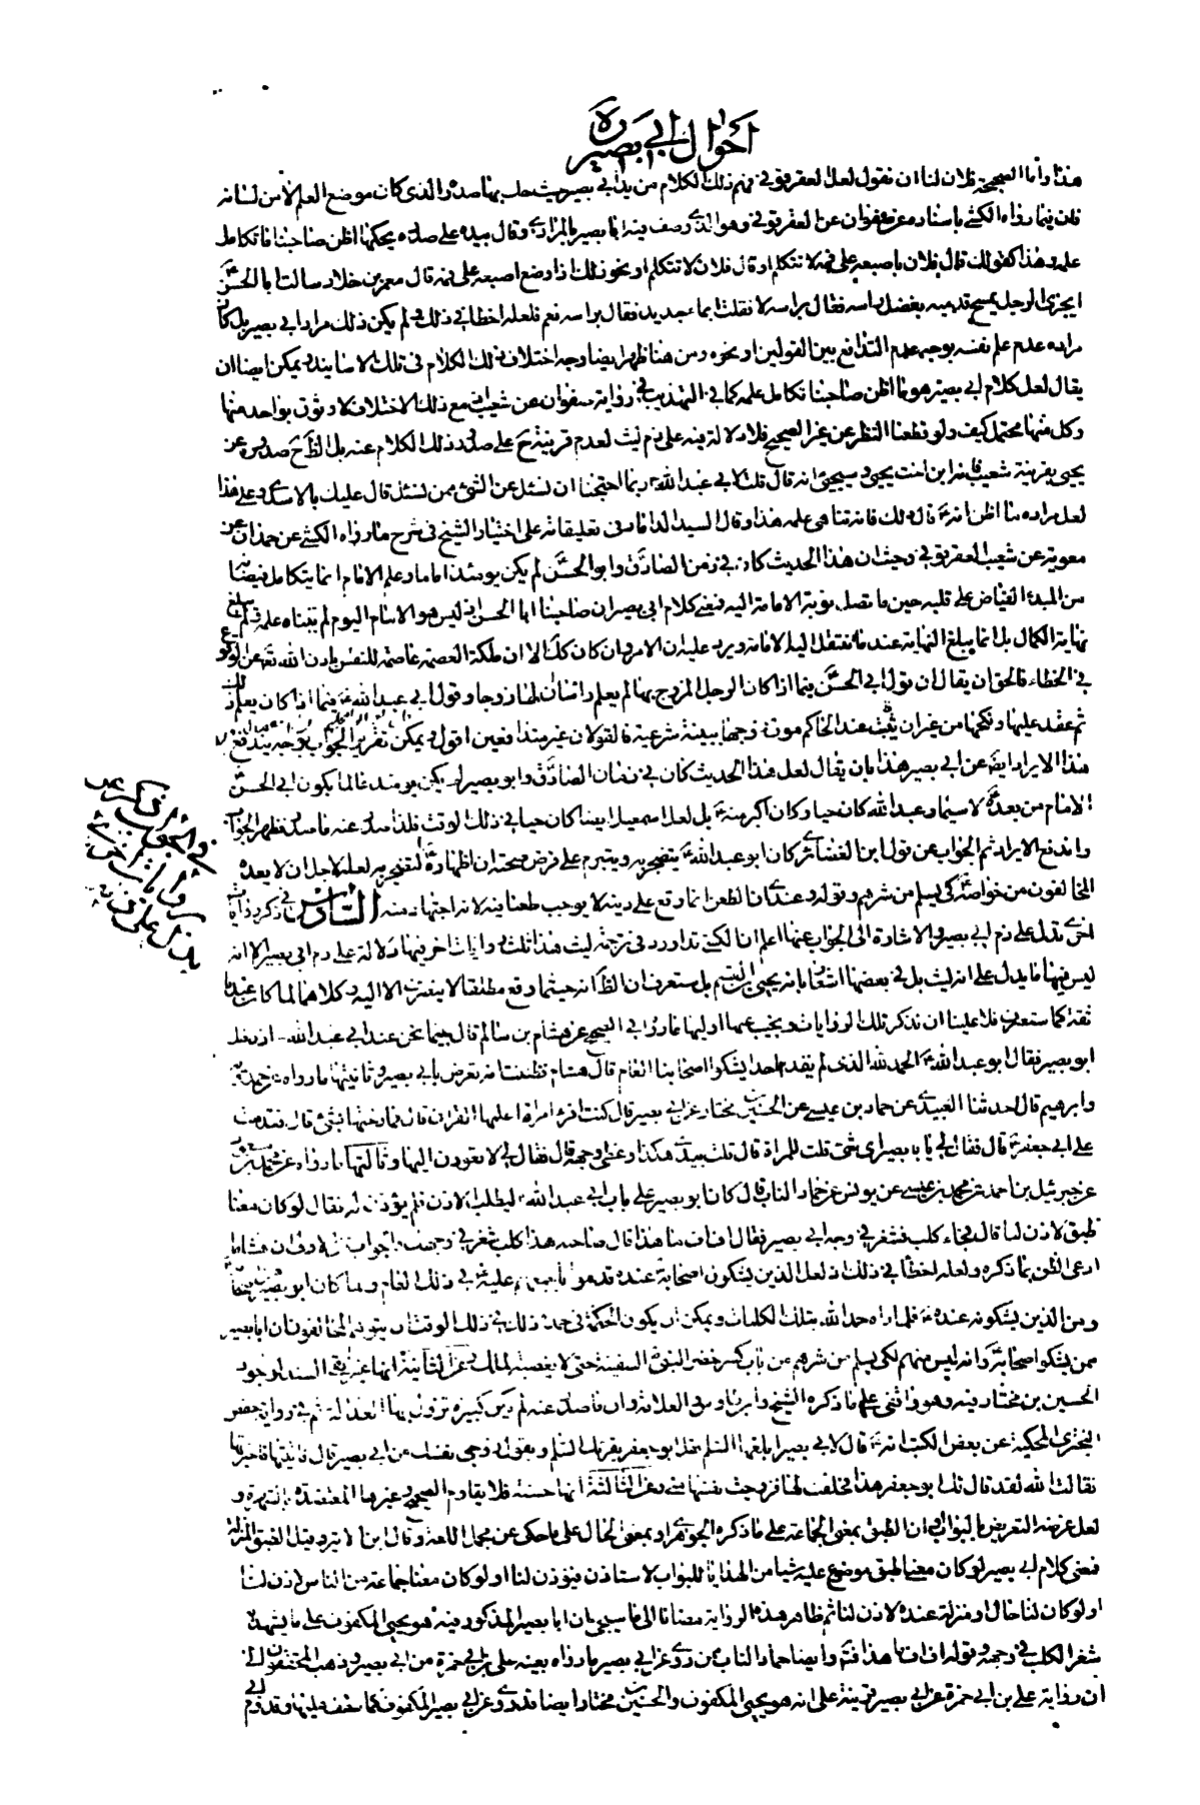 احوال ابي بصير ره
هذا واما الصحيحة فلان لنا ان نقول لعل العقرقوفي فهم ذلك الكلام من يد ابي بصير حيث حك بها صدره والذي كان موضع العلم لا من لسانه
فان فيما رواه الكشي باسناده عن صفوان عن العقرقوفي وهو الذي وصف فيه ابا بصير بالمرادي وقال بيده على صدره يحكها اظن صاحبنا ما تكامل
علمه وهذا كقولك قال فلان باصبعه على فمه لا تتكلم او قال فلان لا تتكلم او نحو ذلك اذا وضع اصبعه على فمه قال معمر بن خلاد سالت ابا الحسن
ايجزي الرجل يمسح قدميه بفضل راسه فقال براسه لا فقلت ابماء جديد فقال براسه نعم فلعله اخطا في ذلك ولم يكن ذلك مراد ابي بصير بل كان
مراده عدم علم نفسه بوجه عدم التدافع بين القولين او نحوه ومن هنا ظهر ايضا وجه اختلاف ذلك الكلام في تلك الاسانيد ويمكن ايضا ان
يقال لعل كلام ابي بصير هو ما اظن صاحبنا تكامل علمه كما في التهذيب في رواية صفوان عن شعيب فمع ذلك الاختلاف لا وثوق بواحد منها
وكل منها محتمل كيف ولو قطعنا النظر عن غير الصحيح فلا دلالة فيه على ذم ليث لعدم قرينة على صدور ذلك الكلام عنه بل الظ ح صدوره عن
يحيى بقرينة شعيب فانه ابن اخت يحيى وسيجيئ انه قال قلت لابي عبد الله ربما احتجنا ان نسئل عن الشيئ فمن نسئل قال عليك بالاسدي وعلى هذا
لعل مراده ما اظن انه قال ذلك فانه تناهى علمه هذا وقال السيد الداماد في تعليقاته على اختيار الشيخ في شرح ما رواه الكشي عن حمدان عن
معوية عن شعيب العقرقوفي وحيث ان هذا الحديث كان في زمن الصادق وابو الحسن لم يكن يومئذ اماما وعلم الامام انما يتكامل فيضانه
من المبدء الفياض على قلبه حين ما تصل نوبة الامامة اليه فمعنى كلام ابي بصير ان صاحبنا ابا الحسن اذ ليس هو الامام اليوم لم يتناه علمه ولم يبلغ
نهاية الكمال بل انما يبلغ النهاية عند ما تنتقل اليه الامامة ويرد عليه ان الامر وان كان كك الا ان ملكة العصمة عاصمة للنفس باذن الله تع عن الوقوع
في الخطاء فالحق ان يقال ان قول ابي الحسن فيما اذا كان الرجل المزوج بها لم يعلم راسا ان لها زوجا وقول ابي عبد الله فيما اذا كان يعلم ذلك
ثم عقد عليها ونكحها من غير ان يثبت عند الحاكم موت زوجها ببينة شرعية فالقولان غير متدافعين اقول ويمكن تقرير الجواب بوجه يندفع
هذا الايراد ايضا عن ابي بصير هذا بان يقال لعل هذا الحديث كان في زمان الصادق وابو بصير لم يكن يومئذ عالما بكون ابي الحسن
الامام من بعده لا سيما وعبد الله كان حيا وكان اكبر منه بل لعل اسمعيل ايضا كان حيا في ذلك الوقت فلذا صدر عنه ما صدر فظهر الجواب
واندفع الايراد ثم الجواب عن قول ابن الغضائري كان ابو عبد الله يتضجر به ويتبرم على فرض صحته ان اظهاره التضجر به لعله لاجل ان لا يعده
المخالفون من خواصه كي يسلم من شرهم وقوله وعندي ان الطعن انما وقع على دينه لا يوجب طعنا فيه لانه اجتهاد منه السادس في ذكر روايات
اخرى تدل على ذم ابي بصير والاشارة الى الجواب عنها اعلم ان الكشي قد اورد في ترجمة ليث هذا ثلث روايات اخر فيها دلالة على ذم ابي بصير الا انه
ليس فيها ما يدل على انه ليث بل في بعضها اشعار بانه يحيى بل ستعرف ان الظ انه حيثما وقع مطلقا لا ينصرف الا اليه وكلاهما لما كان عندنا
ثقة كما ستعرف فلا علينا ان نذكر تلك الروايات ونجيب عنها اوليها ما روى في الصحيح عن هشام بن سالم قال بينما نحن عند ابي عبد الله اذ دخل
ابو بصير فقال ابو عبد الله الحمد لله الذي لم يقدم احد يشكو اصحابنا العام قال هشام فظننت انه تعرض بابي بصير وثانيتها ما رواه عن حمدويه
وابرهيم قال حدثنا العبيدي عن حماد بن عيسى عن الحسين بن مختار عن ابي بصير قال كنت اقرئ امراة اعلمها القران قال فمازحتها بشئ قال فقدمت
على ابي جعفر قال فقال لي يا ابا بصير اي شئ قلت للمراة قال قلت بيدي هكذا وغطى وجهه قال فقال لي لا تعودن اليها وثالثتها ما رواه عن محمد بن مسعود
عن جبرئيل بن احمد عن محمد بن عيسى عن يونس عن حماد الناب قال كان ابو بصير على باب ابي عبد الله ليطلب الاذن فلم يؤذن له فقال لو كان معنا
طبق لاذن لنا قال فجاء كلب فشغر في وجه ابي بصير فقال اف اف ما هذا قال صاحبه هذا كلب شغر في وجهك والجواب ... فان هشاما
ادعى الظن بما ذكره ولعله اخطأ في ذلك ولعل الذين يشكون اصحابه عنده قدموا ... عليه في ذلك العام ولما كان ابو بصير منهم
ومن الذين يشكونه عنده فلما راه حمد الله بتلك الكلمات ويمكن ان يكون الحكمة في حمده ذلك في ذلك الوقت ان يتوهم المخالفون ان ابا بصير
ممن يشكو اصحابه وانه ليس منهم لكي يسلم من شرهم من باب كسر خضر النبي السفينة حتى لا يغصبه الملك وعن الثانية انها غير نقي السند لوجود
الحسين بن مختار فيه وهو واقفي على ما ذكره الشيخ وابن داود والعلامة وان ما صدر عنه لم يكن كبيرة تزول بها العدالة ثم في رواية جعفر
البختري المحكية عن بعض الكتب انه قال لابي بصير ابلغها السلم فقل ابو جعفر يقرئك السلم ويقول زوجي نفسك من ابي بصير قال فاتيتها فاخبرتها
فقالت الله لقد قال لك ابو جعفر هذا فحلفت لها فزوجت نفسها مني وعن الثالثة انها حسنة فلا يقاوم الصحيحة وغيرها المعتضدة بالشهرة و
لعل غرضه التعريض بالبواب ان الطبق بمعنى الجماعة على ما ذكره الجوهري او بمعنى الحال على ما حكى عن مجمل اللغة وقال ابن الاثير وقيل الطبق المنزلة
فمعنى كلام ابي بصير لو كان معنا طبق موضوع عليه شيا من الهدايا للبواب لاستاذن فيؤذن لنا او لو كان معنا جماعة من الناس لاذن لنا
او لو كان لنا حال او منزلة عنده لاذن لنا ثم ظاهر هذه الرواية مضافا الى ما سيجئ ان ابا بصير المذكور فيه هو يحيى المكفوف على ما يشهد
شغر الكلب في وجهه وقوله اف اف ما هذا فتم وايضا حماد الناب ممن روى عن ابي بصير ما رواه بعينه على بن ابي حمزة من ابي بصير وذهب المحققون الى
ان رواية علي بن ابي حمزة عن ابي بصير قرينة على انه هو يحيى المكفوف والحسين بن مختار ايضا قد روى عن ابي بصير المكفوف كما ستقف عليها وقد ذم ابي
في الجواب عن
روايات اخرى
يدل على ذمه